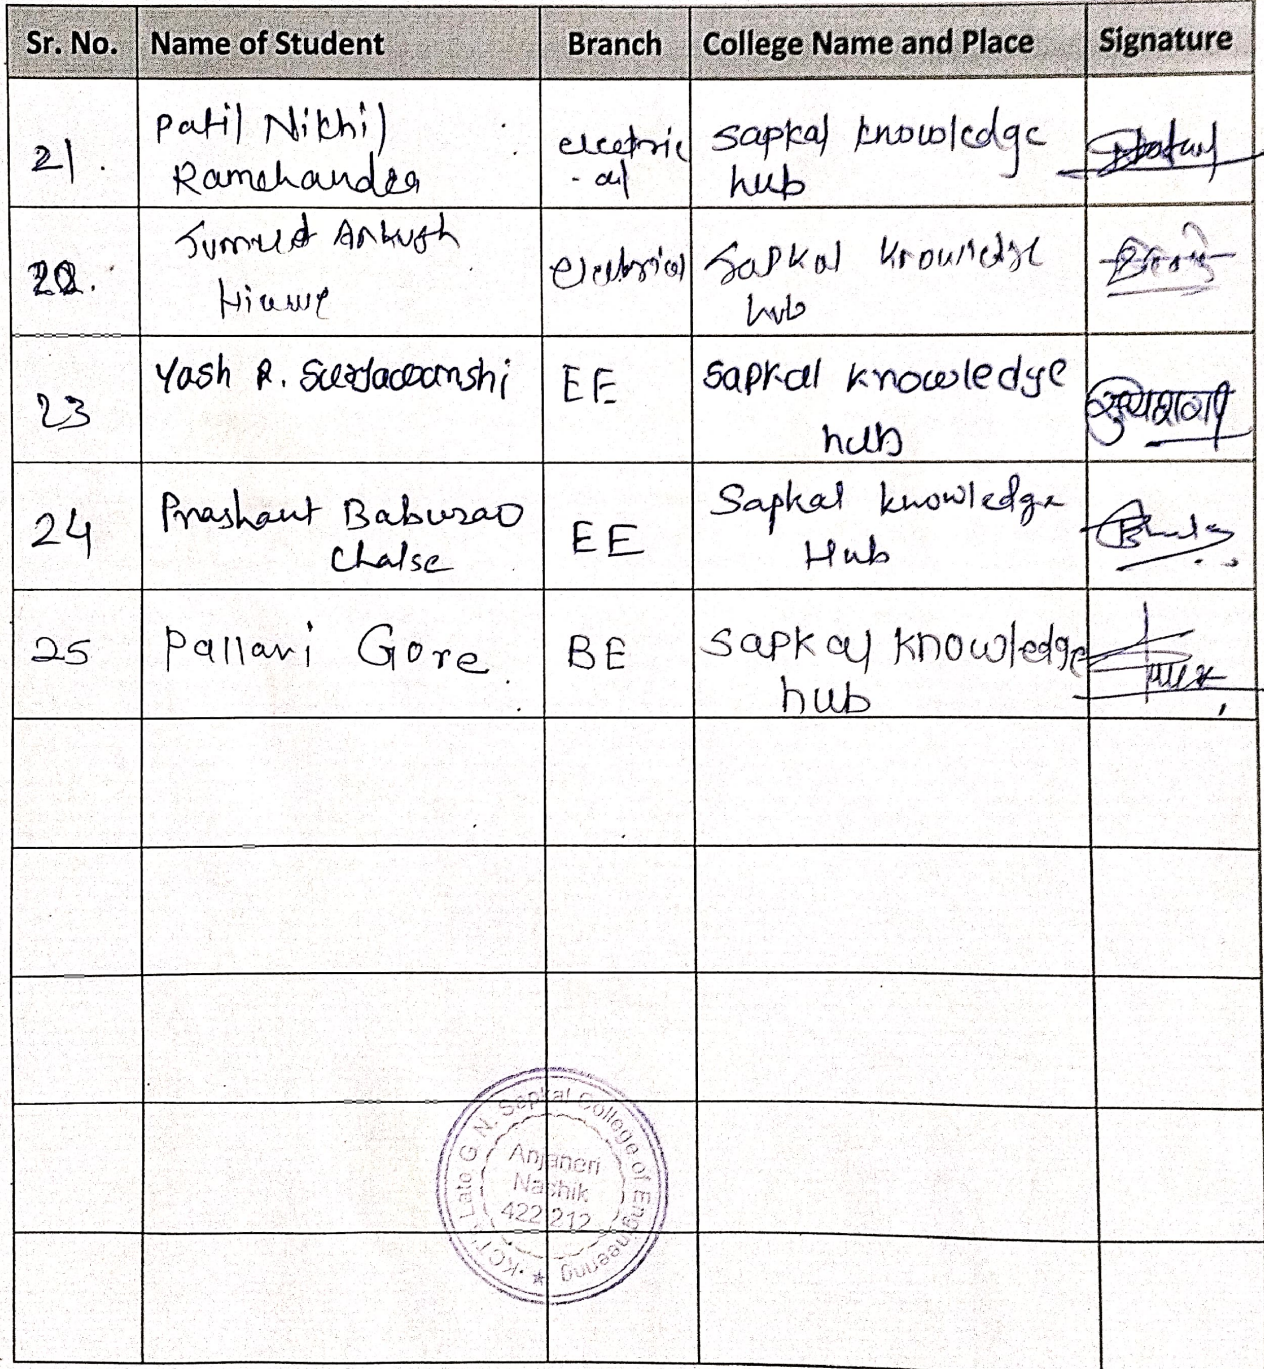 Sr. No. Name of Student Branch College Name and Place Signature
21. Patil Nikhil Ramchandra electric-al sapkal knowledge hub
22. Ankush electrical Sapkal knowledge hub
23 Yash R. EE Sapkal knowledge hub
24 Prashant Baburao Chalse EE Sapkal knowledge Hub
25 Pallavi Gore. BE Sapkal knowledge hub
KCT's Late G. N. Sapkal College of Engineering ★
Anjaneri
Nashik
422 212